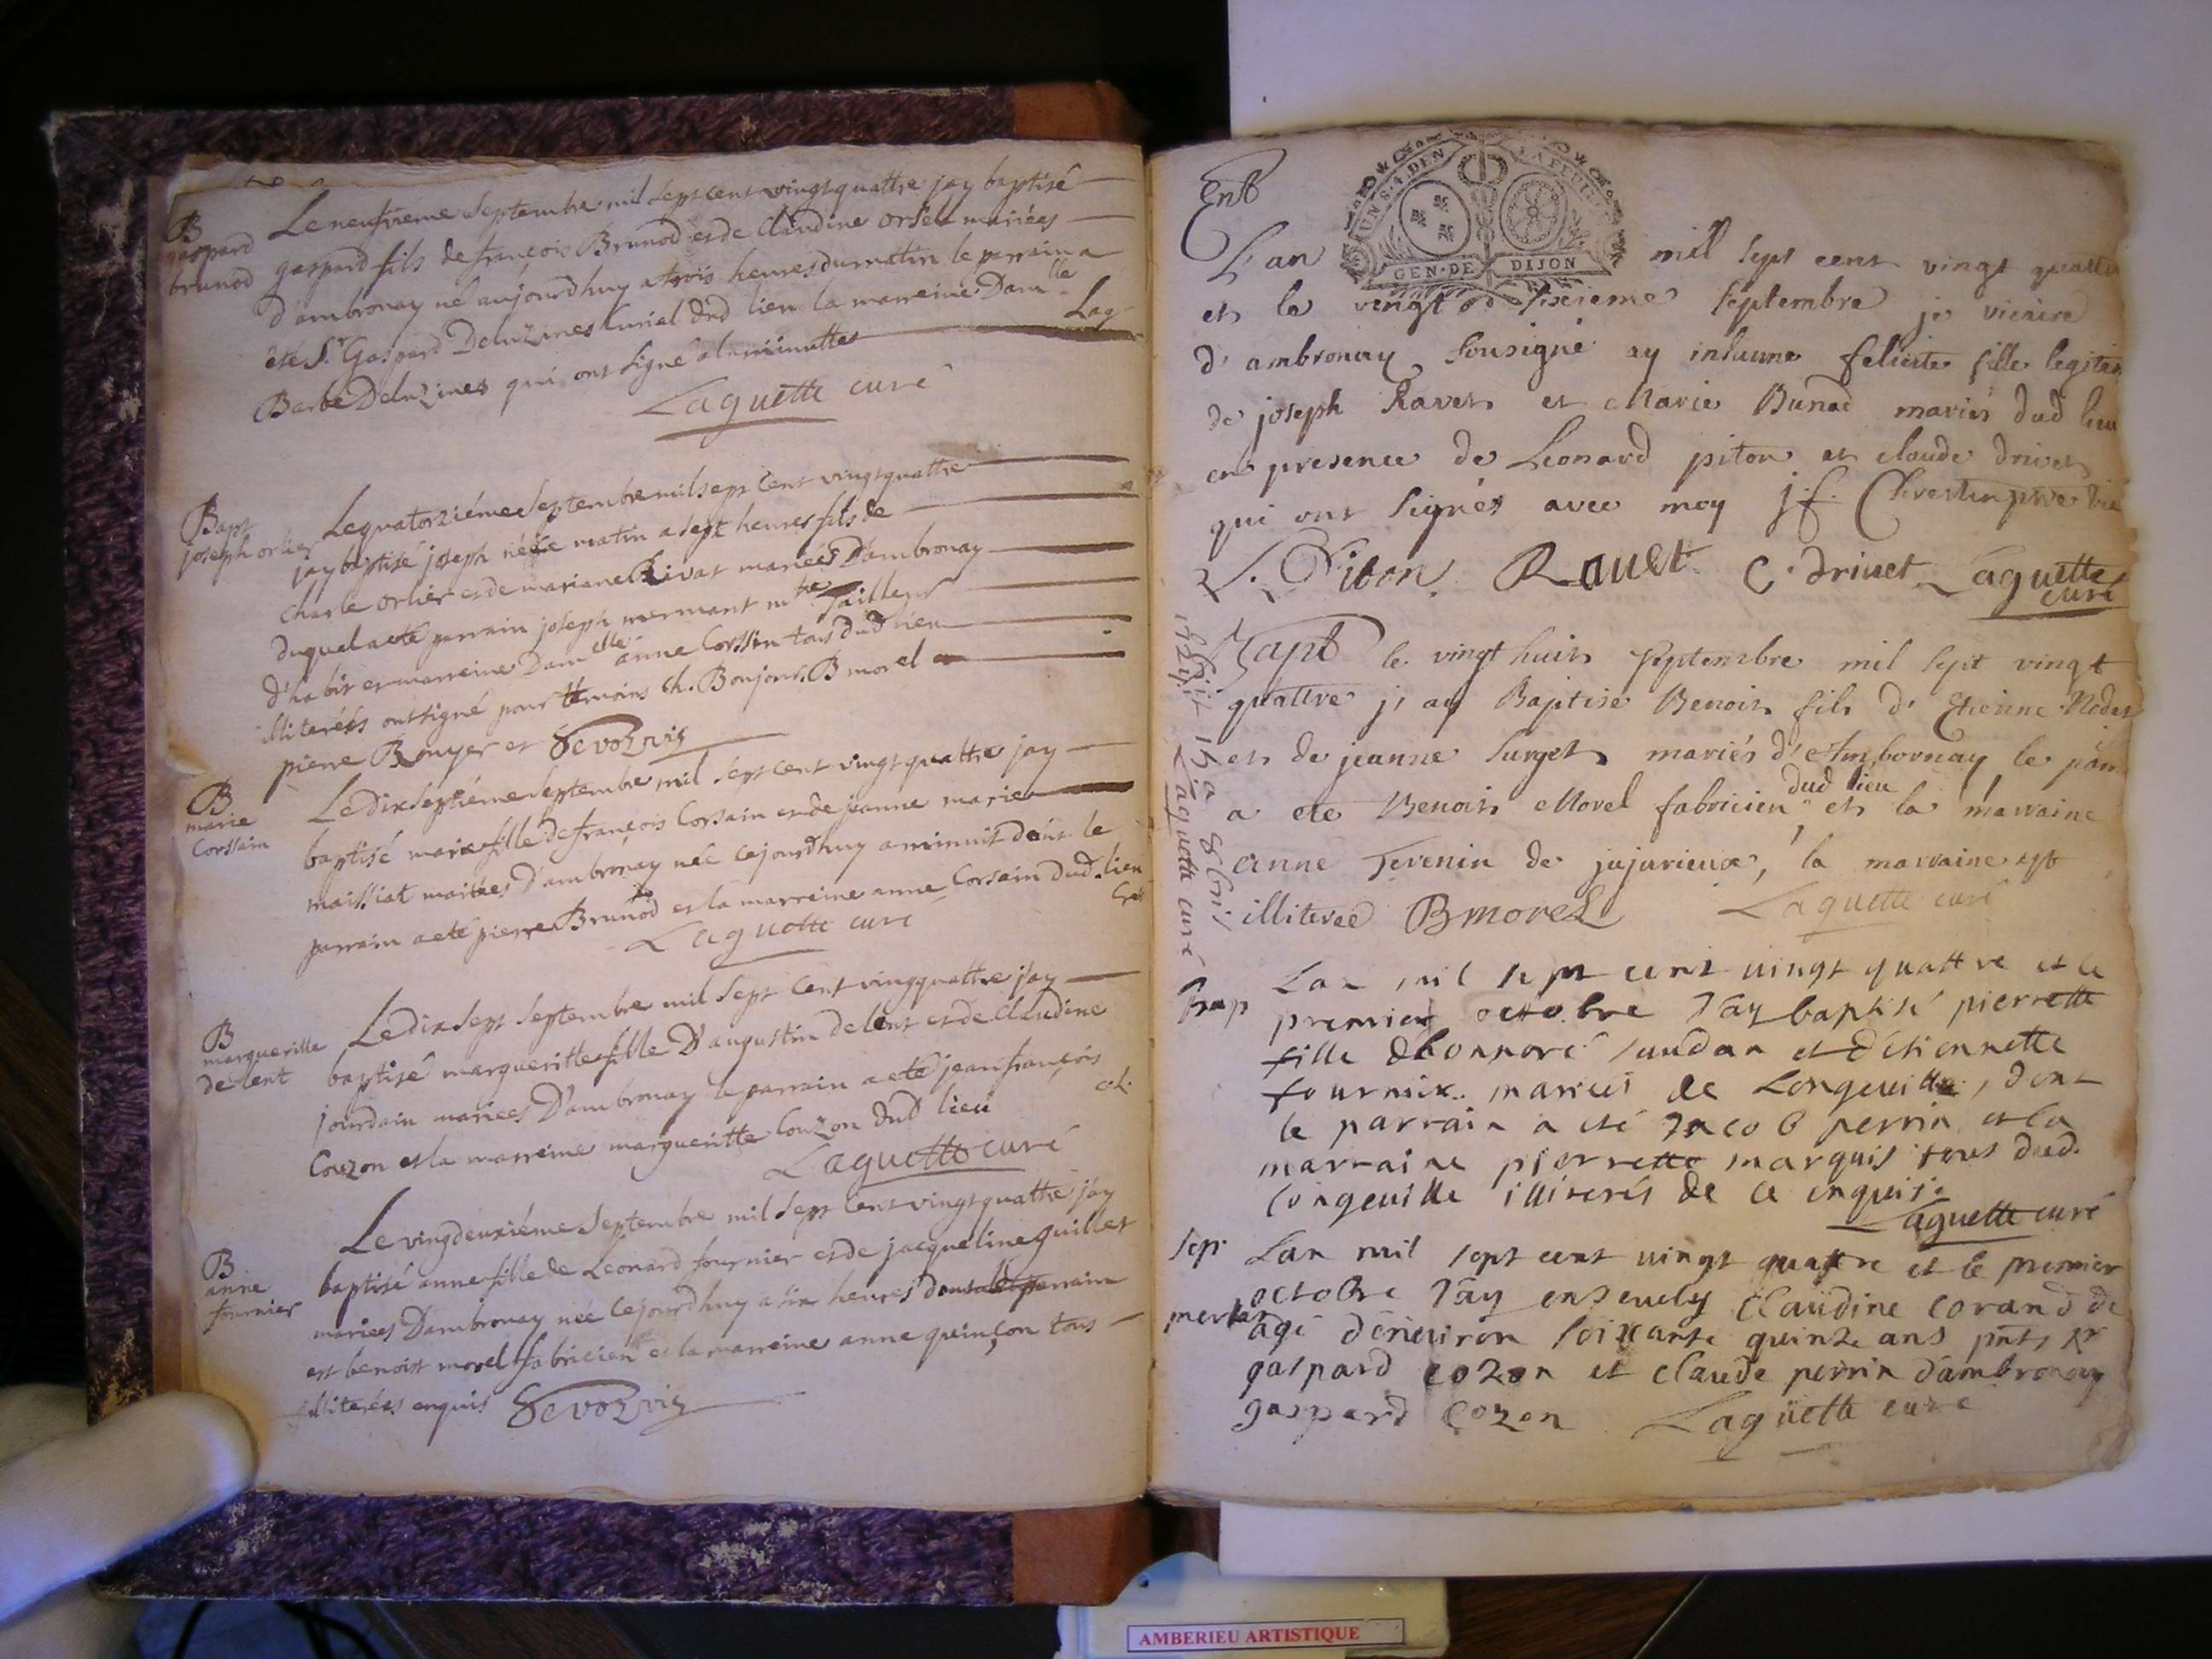 B
gaspard
brunod
Le neufvieme Septembre mil Sept cent vingt quattre jay baptisé
gaspard fils de françois Brunod et de Claudine orset mariées
d'ambronay né aujourdhuy a trois heures du matin le parrain a
eté Sr Gaspard Deluzines Curial dud lieu la marreine Damlle
Barbe Deluzines qui ont signé a la minutte
Lag
Laguette curé
Bapt
joseph orlier
Le quatorziéme Septembre mil Sept Cent vingt quattre
jay baptisé joseph né ce matin a sept heures fils de
Charle orlier et de mariane Rivat mariées D'ambronay
duquel a eté parrain joseph mermant mtre Tailleur
d'habit et marreine Damlle anne Corssin tous dud lieu
illiterées ont signé pour temoins Ch. Bonjour. B morel
pierre Rouyer et
B
marie
Corssain
Le dix Septiéme Septembre mil Sept cent vingt quattre jay
baptisé marie fille de françois Corsain et de jeanne marie
maissiat mariées d'ambronay née cejourdhuy a minuit dont le
parrain a eté pierre Brunod et la marreine anne Corsain dud. lieu
Laguette curé
B
margueritte
de lent
Le dix Sept Septembre mil Sept Cent vingquattre j'ay
baptisé margueritte fille D'augustin de lent et de Claudine
jourdain mariées D'ambronay le parrain a eté jean françois
Couzon et la marreine margueritte Couzon dud lieu
Laguette curé
B
anne
fournier
Le vingdeuxiéme Septembre mil Sept Cent vingt quattre j'ay
baptisé anne fille de Leonard fournier et de jacqueline guillet
mariees D'ambronay née cejourdhuy a six heures dont le parrain
est benoist morel fabricien et la marreine anne quinçon tous
illiterées enquis
Ent
GEN·DE DIJON
L'an mil sept cent vingt quattre
et le vingt sixieme septembre je vicaire
d'ambronay sousigné ay inhumé feliciste fille legitim
de joseph Ravet et Marie Bunod mariés dud lieu
en presence de Leonard piton et claude drivet
qui ont signés avec moy j.f.
L. Piton. Rauet C. drivet Laguette
curé
Bapt le vingt huit septembre mil sept vingt
quattre j'ay Baptisé Benoit fils d'Etienne Rodet
et de jeanne surget mariés d'Ambornay le parr
a eté Benoit Morel fabricien dud lieu et la marraine
anne Tevenin de jujurieux, la marraine est
illiterée BMorel Laguette curé
Laguette curé
Bap
Lan mil sept cent vingt quattre et le
premier octobre Jay baptisé pierrette
fille dhonnoré sundan et d'étiennette
fournix mariés de Longeville, dont
le parrain a eté Jacob perrin et la
marraine pierrette marquis tous dud.
longeville illiterés de ce enquis.
Laguette curé
Sep.
Lan mil sept cent vingt quattre et le premier
octobre Jay ensevely Claudine Corand de
merlan
agé d'énviron soixante quinze ans pnts
gaspard cozon et Claude perrin d'ambronay
gaspard Cozon Laguette curé
AMBERIEU ARTISTIQUE